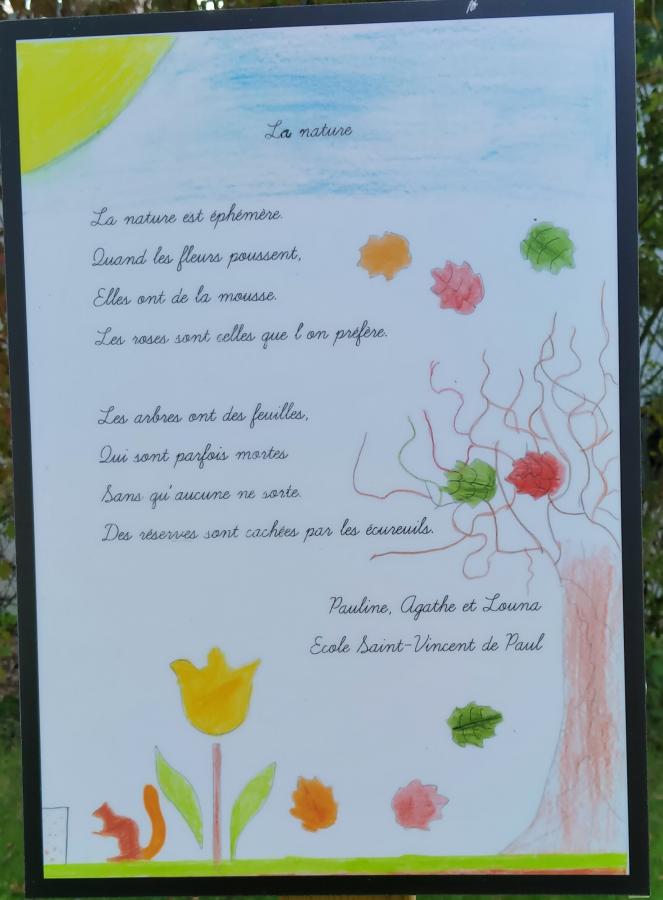 La nature
La nature est éphémère.
Quand les fleurs poussent,
Elles ont de la mousse.
Les roses sont celles que l on préfère.
Les arbres ont des feuilles,
Qui sont parfois mortes
Sans qu'aucune ne sorte.
Des réserves sont cachées par les écureuils.
Pauline, Agathe et Louna
Ecole Saint-Vincent de Paul